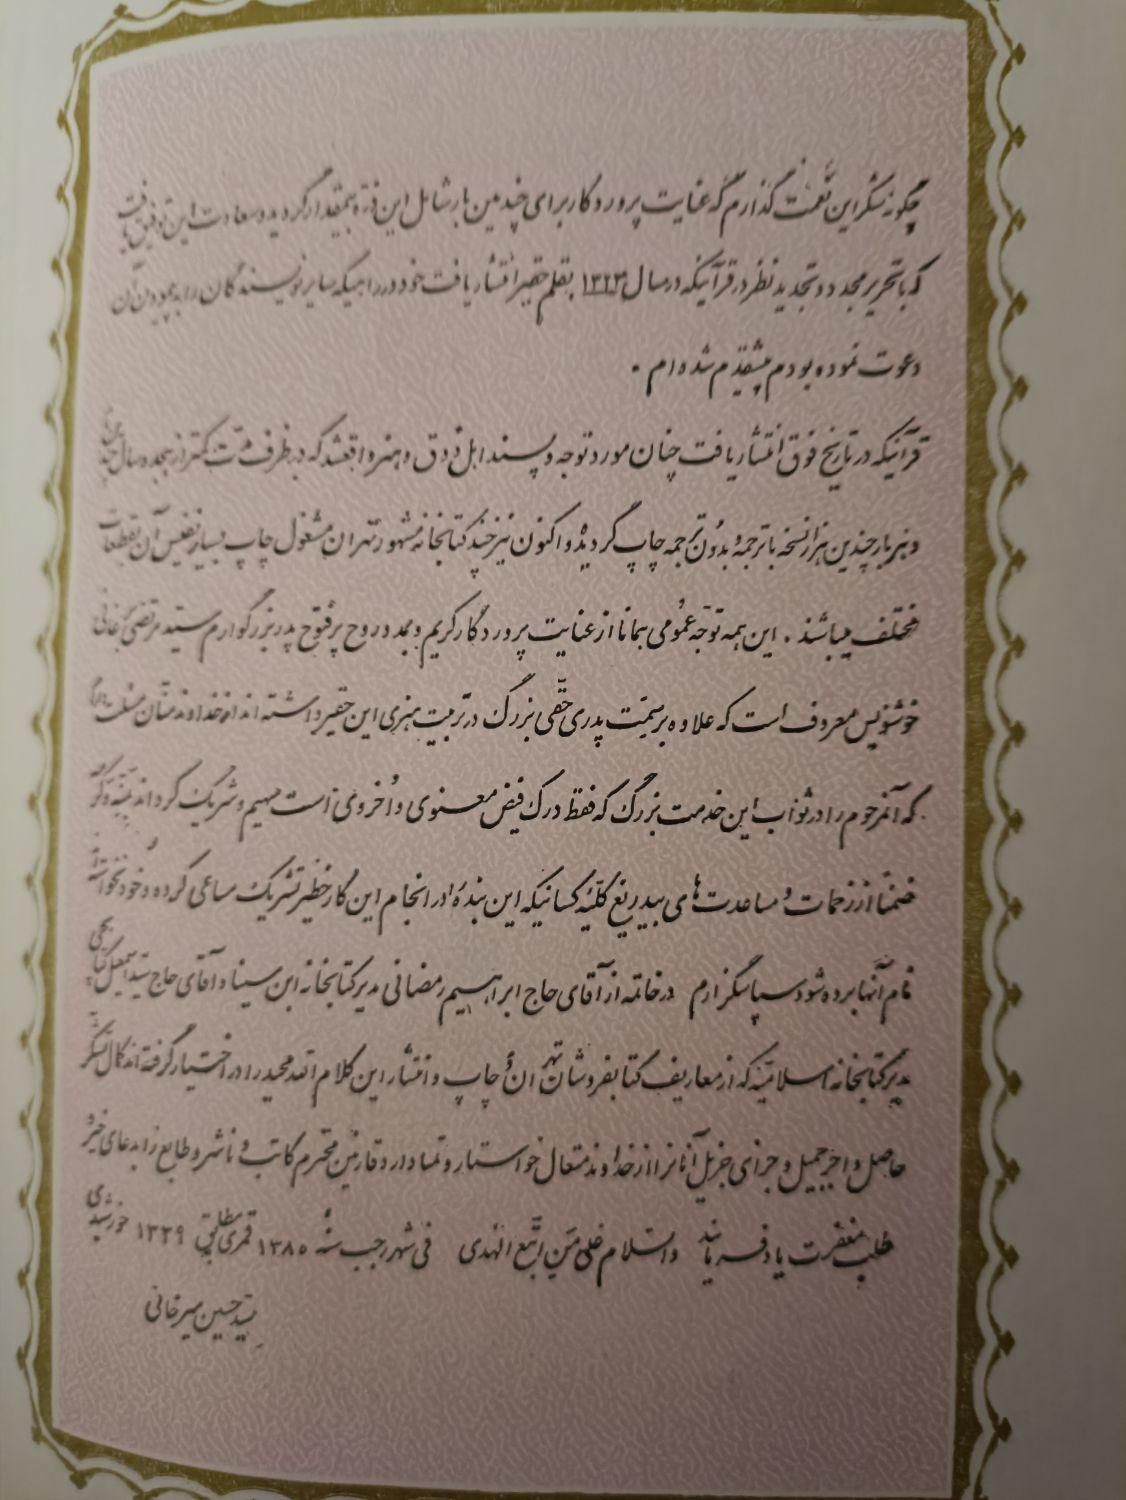 چگونه شکر این نعمت گذارم که عنایت پروردگار برای چندمین بار شامل این ذره بیمقدار گردید و سعادت این توفیق یافت
که با تحریر مجدد و تجدید نظر در قرآنیکه در سال ۱۳۲۳ بقلم حقیر انتشار یافت خود در راهیکه سایر نویسندگان را به پیمودن آن
دعوت نموده بودم پیشقدم شده‌ام .
قرآنیکه در تاریخ فوق انتشار یافت چنان مورد توجه و پسند اهل ذوق و هنر واقعشد که در ظرف مدت کمتر از هجده سال چندین
و هر بار چندین هزار نسخه با ترجمه و بدون ترجمه چاپ گردیده و اکنون نیز چند کتابخانه مشهور تهران مشغول چاپ بسیار نفیس آن بقطعات
مختلف میباشند . این همه توجه عمومی همانا از عنایت پروردگار کریم و مدد روح پرفتوح پدر بزرگوارم سید مرتضی برغانی
خوشنویس معروف است که علاوه بر سمت پدری حقی بزرگ در تربیت هنری این حقیر داشته‌اند از خداوند منان مسئلت دارم
که آنمرحوم را در ثواب این خدمت بزرگ که فقط درک فیض معنوی و اخروی است سهیم و شریک گرداند
ضمناً از زحمات و مساعدت‌های بیدریغ کلیه کسانیکه این بنده را در انجام این کار خطیر تشریک مساعی کرده و خود نخواسته‌اند
نام آنها برده شود سپاسگزارم در خاتمه از آقای حاج ابراهیم رمضانی مدیر کتابخانه ابن سینا و آقای حاج سید اسمعیل کتابچی
مدیر کتابخانه اسلامیه که از معاریف کتابفروشان تهران و چاپ و انتشار این کلام الله مجید را در اختیار گرفته‌اند کمال تشکر
حاصل و اجر جمیل و جزای جزیل آنانرا از خداوند متعال خواستار و تمنا دارد قارئین محترم کاتب و ناشر و طابع را بدعای خیر و
طلب مغفرت یاد فرمایند والسلام علی من اتبع الهدی فی شهر رجب سنه ۱۳۸۵ قمری مطابق ۱۳۳۹ خورشیدی
سید حسین میرخانی